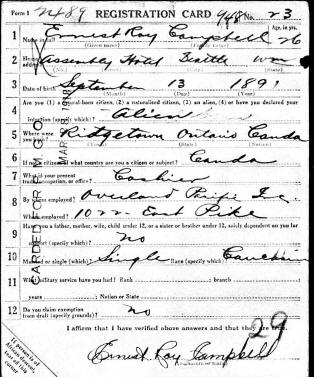 Form 1 2489 REGISTRATION CARD 948 No. 23
1 Name in full Ernest Roy Campbell Age, in yrs. 26
(Given name) (Family name)
2 Home address Assembly Hotel Seattle Wn
(No.) (Street) (City) (State)
3 Date of birth September 13 1891
(Month) (Day) (Year)
4 Are you (1) a natural-born citizen, (2) a naturalized citizen, (3) an alien, (4) or have you declared your
intention (specify which)? Alien
5 Where were you born? Ridgetown Ontario Canda
(Town) (State) (Nation)
6 If not a citizen, of what country are you a citizen or subject? Canda
7 What is your present trade, occupation, or office? Cashier
8 By whom employed? Overland Pacific Inc.
Where employed? 1022- East Pike
9 Have you a father, mother, wife, child under 12, or a sister or brother under 12, solely dependent on you for
support (specify which)? No
10 Married or single (which)? Single Race (specify which)? Caucasian
11 What military service have you had? Rank ; branch
years ; Nation or State
12 Do you claim exemption from draft (specify grounds)? No
I affirm that I have verified above answers and that they are true.
29
Ernest Roy Campbell
If person is of African descent, tear off this corner
CARDED FOR P.M.G.O.